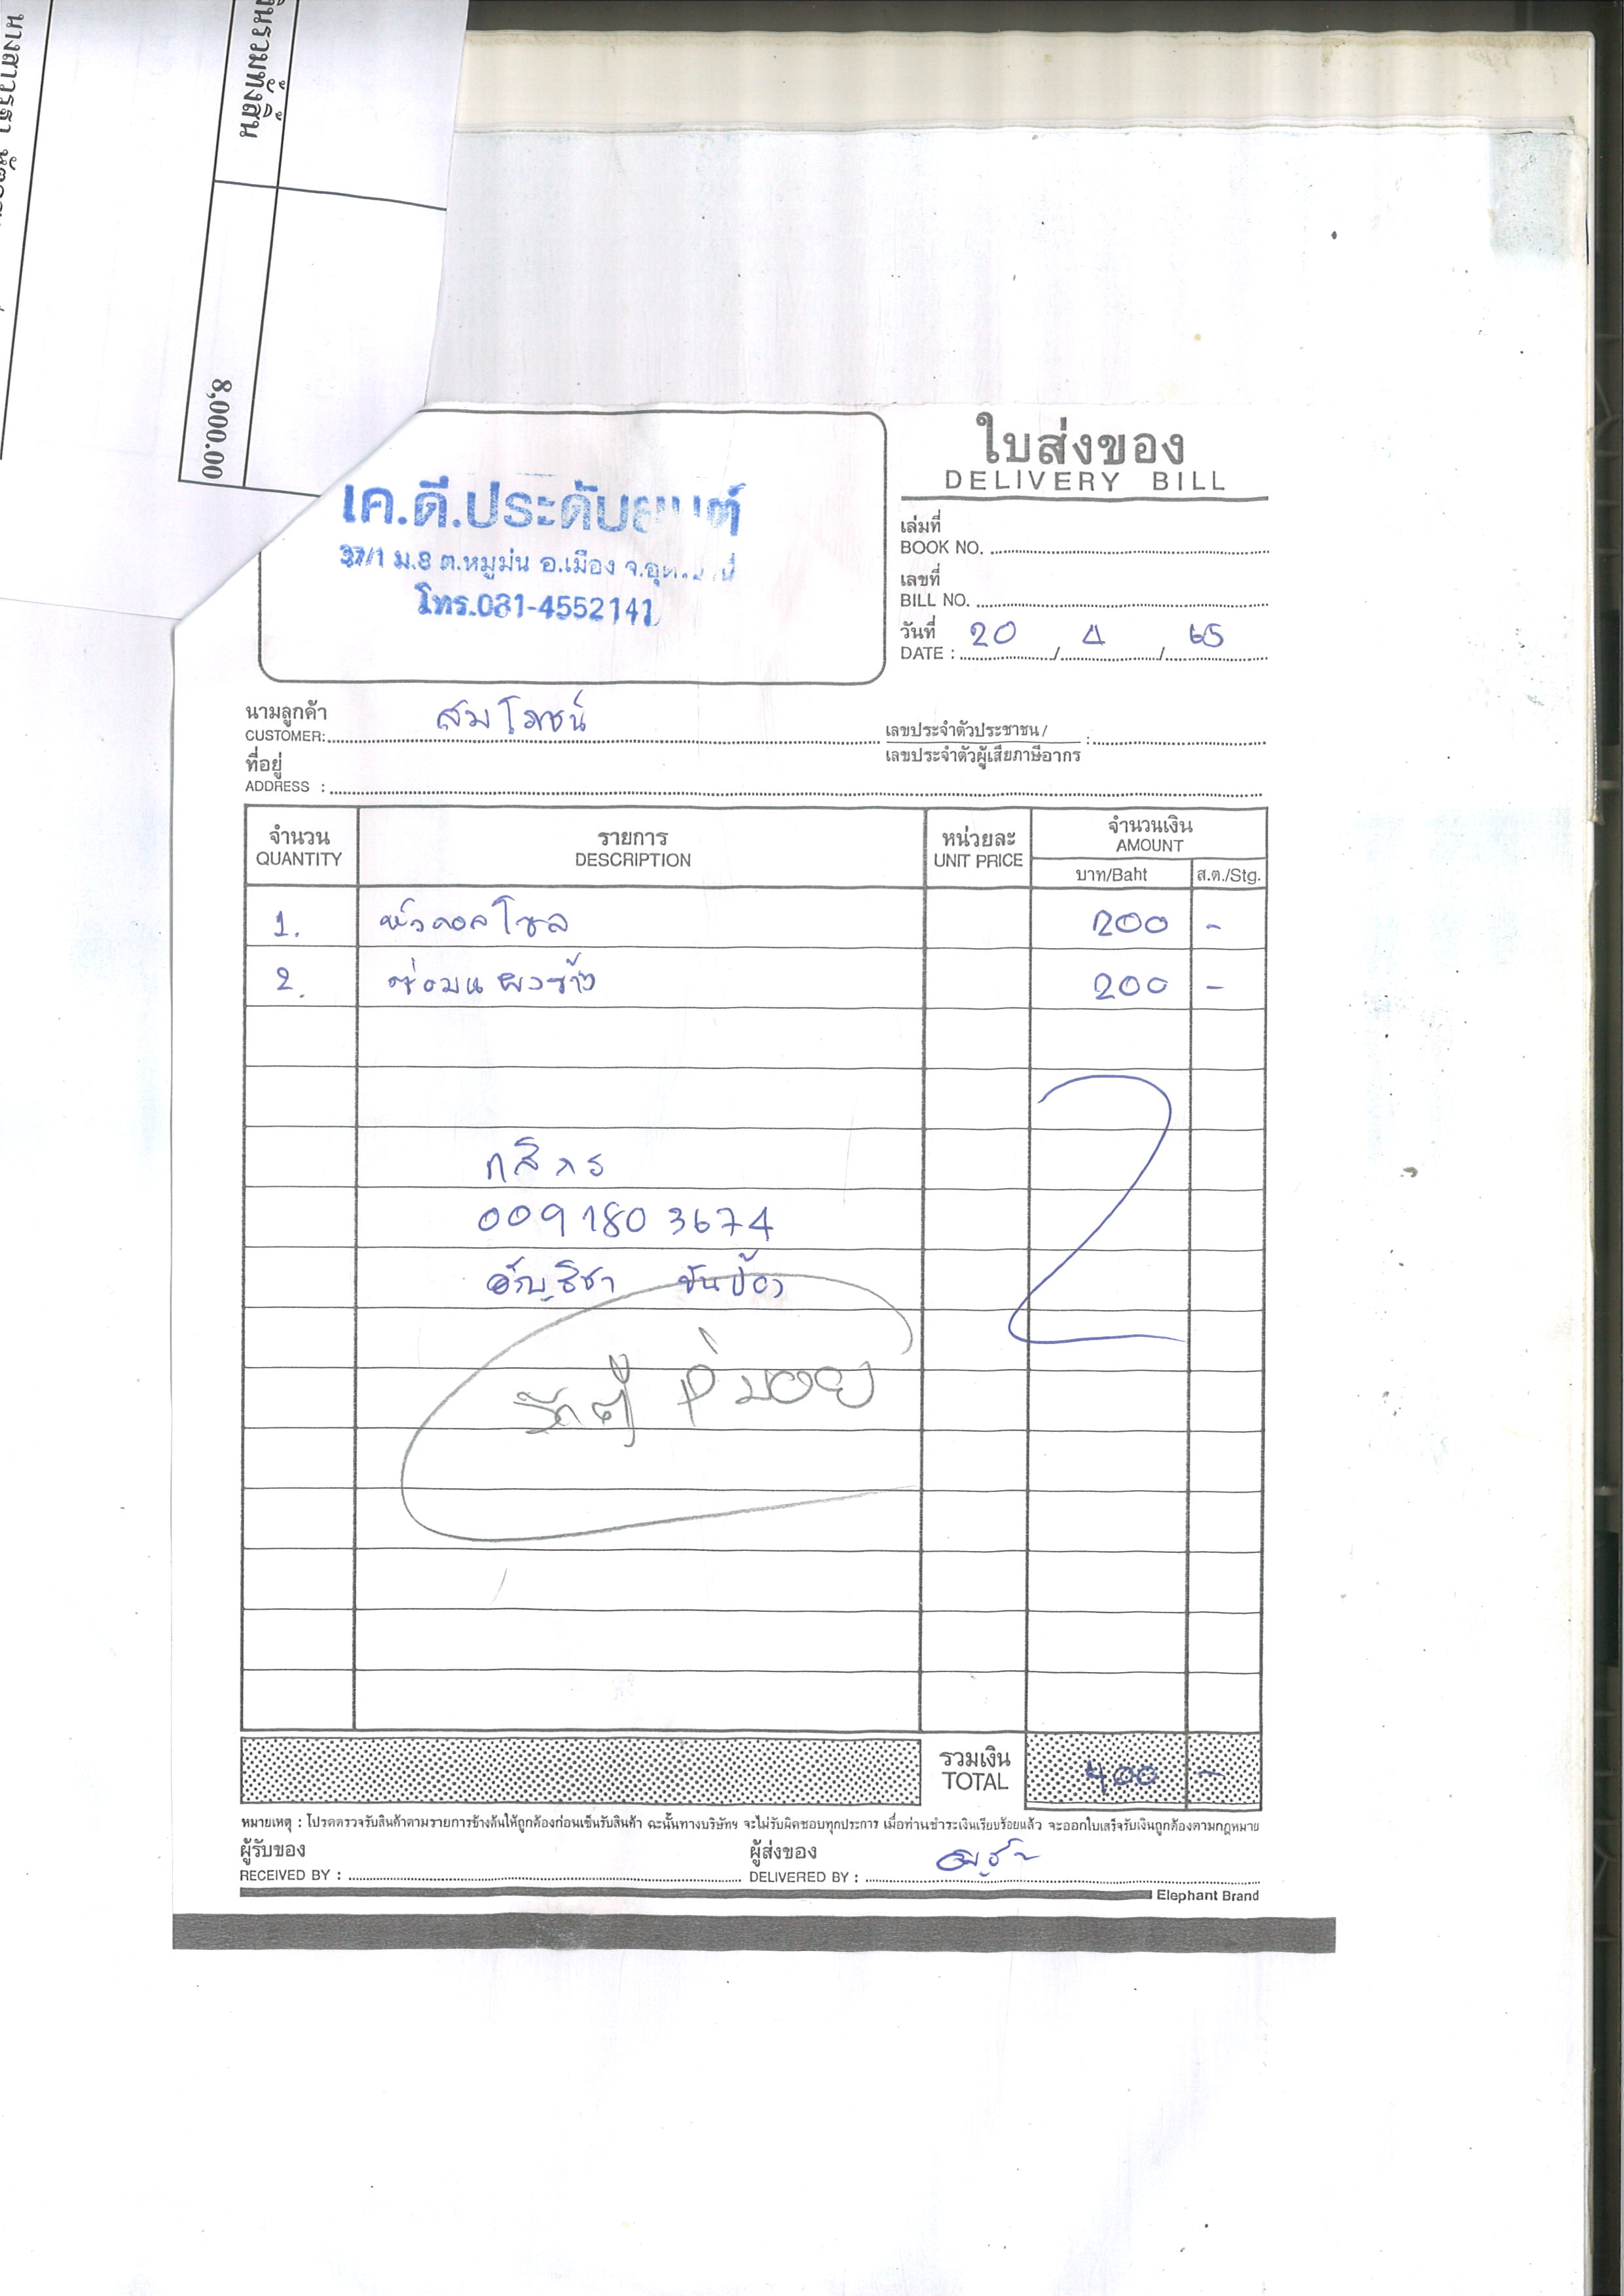 เงินรวมทั้งสิ้น
8,000.00
ใบส่งของ
DELIVERY BILL
เค.ดี.ประดับยนต์
37/1 ม.8 ต.หมูม่น อ.เมือง จ.อุดรธานี
โทร.081-4552141
เล่มที่
BOOK NO.
เลขที่
BILL NO.
วันที่
DATE : 20 / 4 / 65
นามลูกค้า
CUSTOMER: สมโภชน์
เลขประจำตัวประชาชน /
เลขประจำตัวผู้เสียภาษีอากร :
ที่อยู่
ADDRESS :
จำนวน รายการ หน่วยละ จำนวนเงิน
QUANTITY DESCRIPTION UNIT PRICE AMOUNT
บาท/Baht ส.ต./Stg.
1. หัวคอลโซล 200 -
2. ซ่อมแผงข้าง 200 -
กสิกร
009 180 3674
อัญธิชา ขันป้อง
รถตู้ พี่มอย
รวมเงิน
TOTAL 400 -
หมายเหตุ : โปรดตรวจรับสินค้าตามรายการข้างต้นให้ถูกต้องก่อนเซ็นรับสินค้า ฉะนั้นทางบริษัทฯ จะไม่รับผิดชอบทุกประการ เมื่อท่านชำระเงินเรียบร้อยแล้ว จะออกใบเสร็จรับเงินถูกต้องตามกฎหมาย
ผู้รับของ ผู้ส่งของ
RECEIVED BY : DELIVERED BY :
Elephant Brand